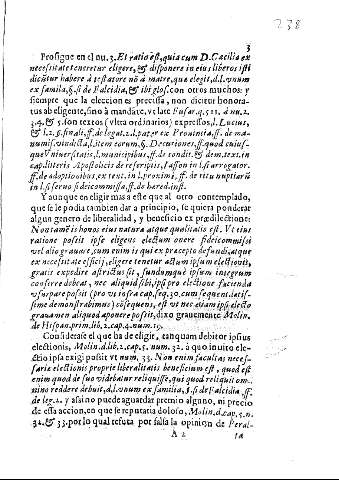 238
3
Prosigue en el nu. 3. Et ratio est, quia cum D. Cæcilia ex
necessitate teneretur eligere, & disponere in eius liberos isti
dicũtur habere à testatore nõ à matre, que elegit, d. l. vnum
ex familia, §. si de Falcidia, & ibi glos. con otros muchos: y
siempre que la eleccion es precissa, non dicitur honora-
tus ab eligente, sino à mandãte, vt late Fusar. q. 521. à nu. 2.
3. 4. 5. son textos (vltra ordinarios) expressos, l. Lucius,
& l. 2. §. finali, ff. de legat. 2. l. pater ex Prouintia, ff. de ma-
numis. vindicta, l. item eorum, §. Decuriones, ff. quod cuius-
que Vniuersitatis, l. municipibus, ff. de condit. & dem. text. in
cap. litteris Apostolicis de rescriptis, Iasson in l. si arrogator.
ff. de adoptionibus, ex tent. in l. proximi, ff. de ritu nuptiarũ
in l. si seruo fideicommissa, ff. de hered. inst.
Y aunque en eligir mas a este que al otro contemplado,
que se le podia tambien dar a principio, se quiera ponderar
algun genero de liberalidad, y beneficio ex prædilectione:
Non tamẽ is honos eius natura atque qualitatis est. Vt eius
ratione possit ipse eligens electum onere fideicommissi
vel alio grauare, cum enim is qui ex præcepto defundi, atque
ex necessitate efficij, eligere tenetur actum ipsum electionis,
gratis expedire astrictus sit, fundumquè ipsum integrum
conferre debeat, nec aliquid sibi, ipsi pro electione facienda
vsurpare possit (pro vt infra cap. seq. 30. cum sequent. latis-
sime demonstrabimus) consequens, est vt nec etiam ipsi electo
grauamen aliquod aponere possit, dixo grauemente Molin.
de Hispan. prim. lib. 2. cap. 4. num. 19.
Considerase el que ha de eligir, tanquam debitor ipsius
electionis, Molin. d. lib. 2. cap. 5. num. 32. à quo inuito ele-
ctio ipsa exigi possit vt num. 33. Non enim facultas neces-
sariæ electionis propriæ liberalitatis beneficium est, quod est
enim quod de suo videbatur reliquisse, qui quod reliquit om-
nino reddere debuit, d. l. vnum ex familia, §. si de Falcidia ff.
de leg. 2. y assi no puede aguardar premio alguno, ni precio
de essa accion, en que se reputaria doloso, Molin. d. cap. 5. n.
32. & 33. por lo qual refuta por falsa la opinion de Peral-
A 2
ta